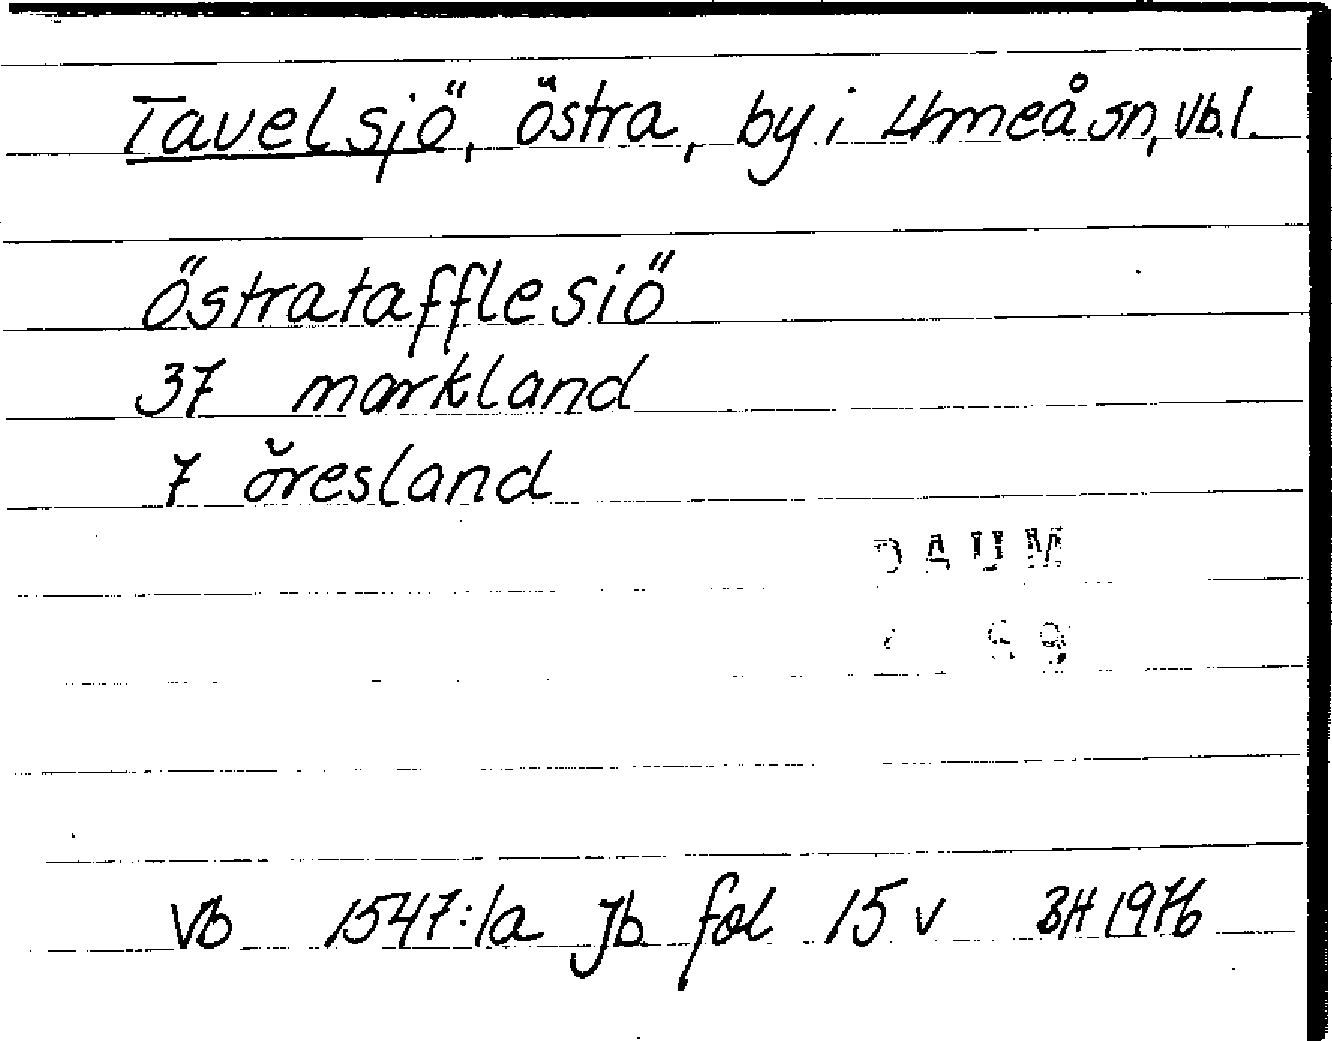 Tavelsjö, östra, by i Umeå sn, Vb.l.
östratafflesiö
37 markland
7 öresland
DAUM
Vb 1547:1a Jb fol 15 v BH 1976